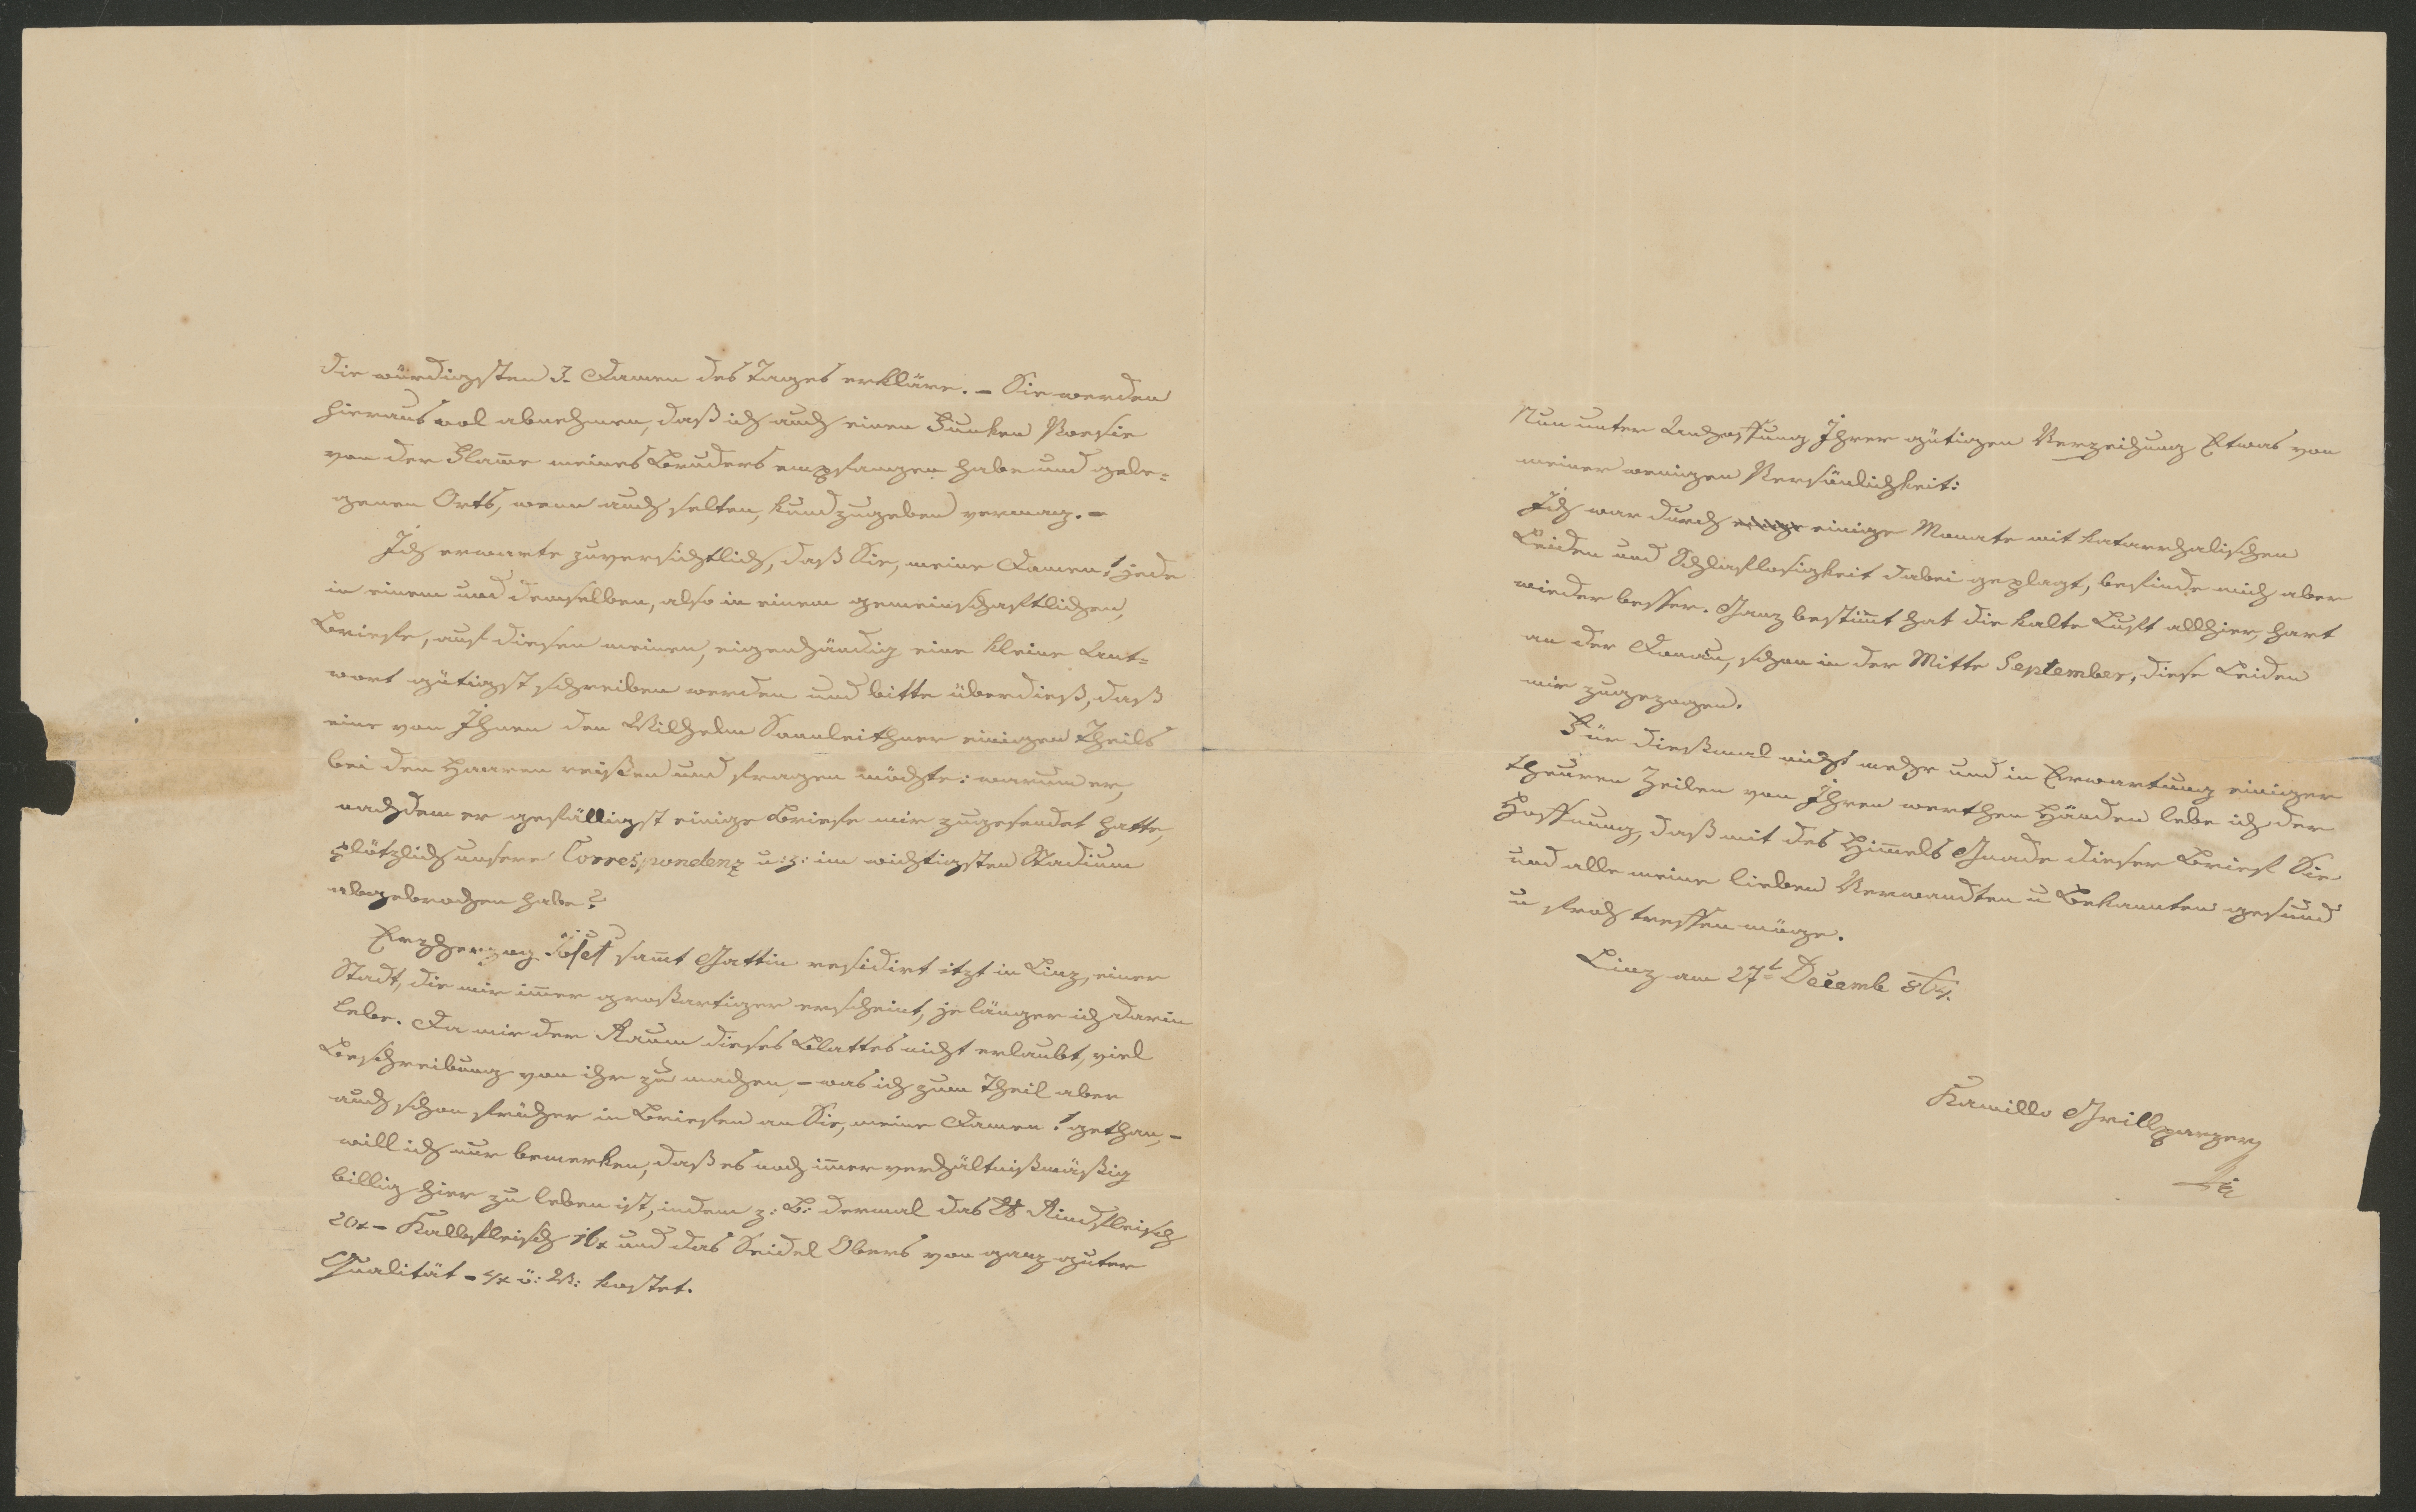 die würdigsten 3. Damen des Tages erkläre. – Sie werden
hieraus wol abnehmen, daß ich auch einen Funken Poesie
von der Flam̅e meines Bruders empfangen habe und gele=
genen Orts, wenn auch selten, kundzugeben vermag. –
Ich erwarte zuversichtlich, daß Sie, meine Damen! jede
in einem und demselben, also in einem gemeinschaftlichen,
Briefe, auf diesen meinen, eigenhändig eine kleine Ant=
wort gütigst schreiben werden und bitte überdieß, daß
eine von Ihnen den Wilhelm Sonnleithner einigen Theils
bei den Haaren reißen und fragen möchte: warum er,
nachdem er gefälligst einige Briefe mir zugesendet hatte,
plötzlich unsere Correspondenz u: z: im wichtigsten Stadium
abgebrochen habe?
Erzherzog Josef sam̅t Gattin residirt itzt in Linz, einer
Stadt, die mir im̅er großartiger erscheint, je länger ich darin
lebe. Da mir der Raum dieses Blattes nicht erlaubt, viel
Beschreibung von ihr zu machen, – was ich zum Theil aber
auch schon früher in Briefen an Sie, meine Damen! gethan, –
will ich nur bemerken, daß es noch im̅er verhältnißmäßig
billig hier zu leben ist, indem z: B: dermal das ℔ Rindfleisch
20x – Kalbfleisch 16x und das Seidel Obers von ganz guter
Qualität – 4x ö: W: kostet.
Nun unter Anhoffung Ihrer gütigen Verzeihung Etwas von
meiner wenigen Persönlichkeit:
Ich war durch einige einige Monate mit katarrhalischen
Leiden und Schlaflosigkeit dabei geplagt, befinde mich aber
wieder besser. Ganz bestim̅t hat die kalte Luft allhier, hart
an der Donau, schon in der Mitte September, diese Leiden
mir zugezogen.
Für dießmal nicht mehr und in Erwartung einiger
theuren Zeilen von Ihren werthen Händen lebe ich der
Hoffnung, daß mit des Him̅els Gnade dieser Brief Sie
und alle meine lieben Verwandten u Bekannten gesund
u froh treffen möge.
Linz am 27t Decemb 864.
Kamillo Grillparzer